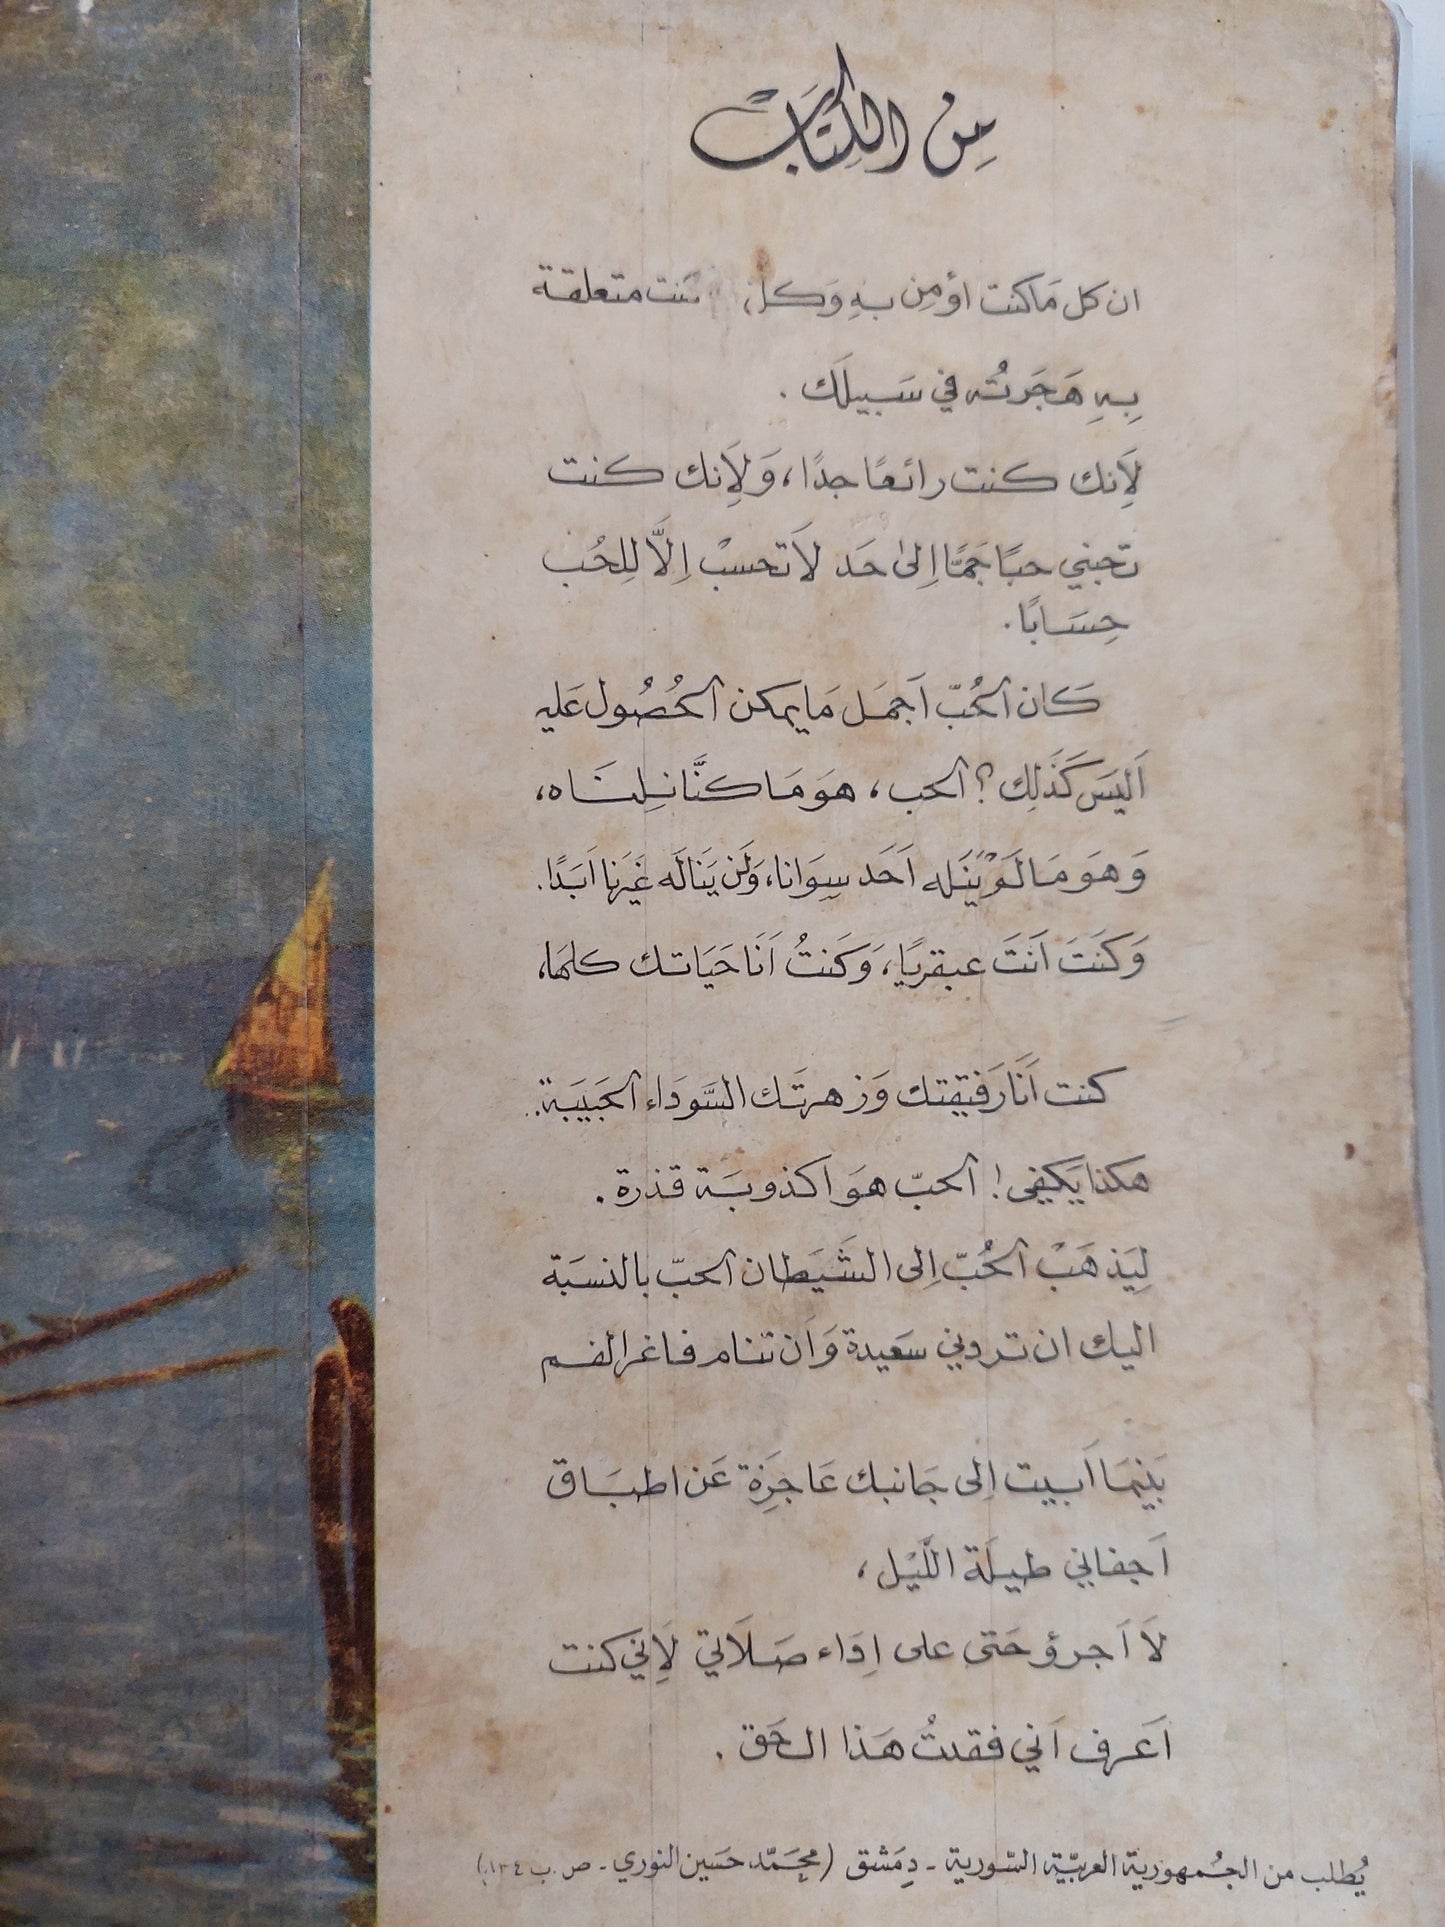 مِنَ الكِتَابْ
ان كل مَا كنت اؤمِن بهِ وَكل كنت متعلقة
بِهِ هَجَرتُه في سَبيلَك .
لَأِنك كنت رائعًا جدًا ، وَلَأِنك كنت
تحبني حبًا جَمًّا اِلى حَد لاَ تحسبْ اِلاَّ لِلحُب
حِسَابًا .
كَان الحُبّ اَجمَل مَا يمكن الحُصُول عَليه
اَليسَ كَذَلِك ؟ الحب ، هوَ مَا كنَّا نِلنَاه ،
وَهوَ مَا لَمْ يَنَله اَحَد سِوَانا ، وَلَن يَنَالَه غَيَرنا اَبَدًا .
وَكَنتَ اَنتَ عبقريًا ، وَكَنتُ اَنَا حَيَاتك كلهَا ،
كنت اَنَا رَفيقتك وَزهرتَك السَّودَاء الحَبَيبَة ..
هكذا يَكفِي ! الحبّ هوَ اكذوبَة قذرة .
لِيَذهَبْ الحُبّ اِلى الشَيَطان الحبّ بالنسبَة
اليك ان تروني سَعيدة وَاَن تنام فاغر الفم
بَينمَا اَبيت اِلى جَانبك عَاجَزِة عَن اطبَاق
اَجفاني طيلَة اللَّيْل ،
لاَ اَجرؤ حَتى على اِدَاء صَلاَتي لَأِني كنت
اَعَرف اَني فقدتُ هَذا الحَق .
يُطلب من الجُمهورية العربيّة السّورية - دِمَشق (محَمَّد حسَين النوري - ص . ب ١٣٤٠)